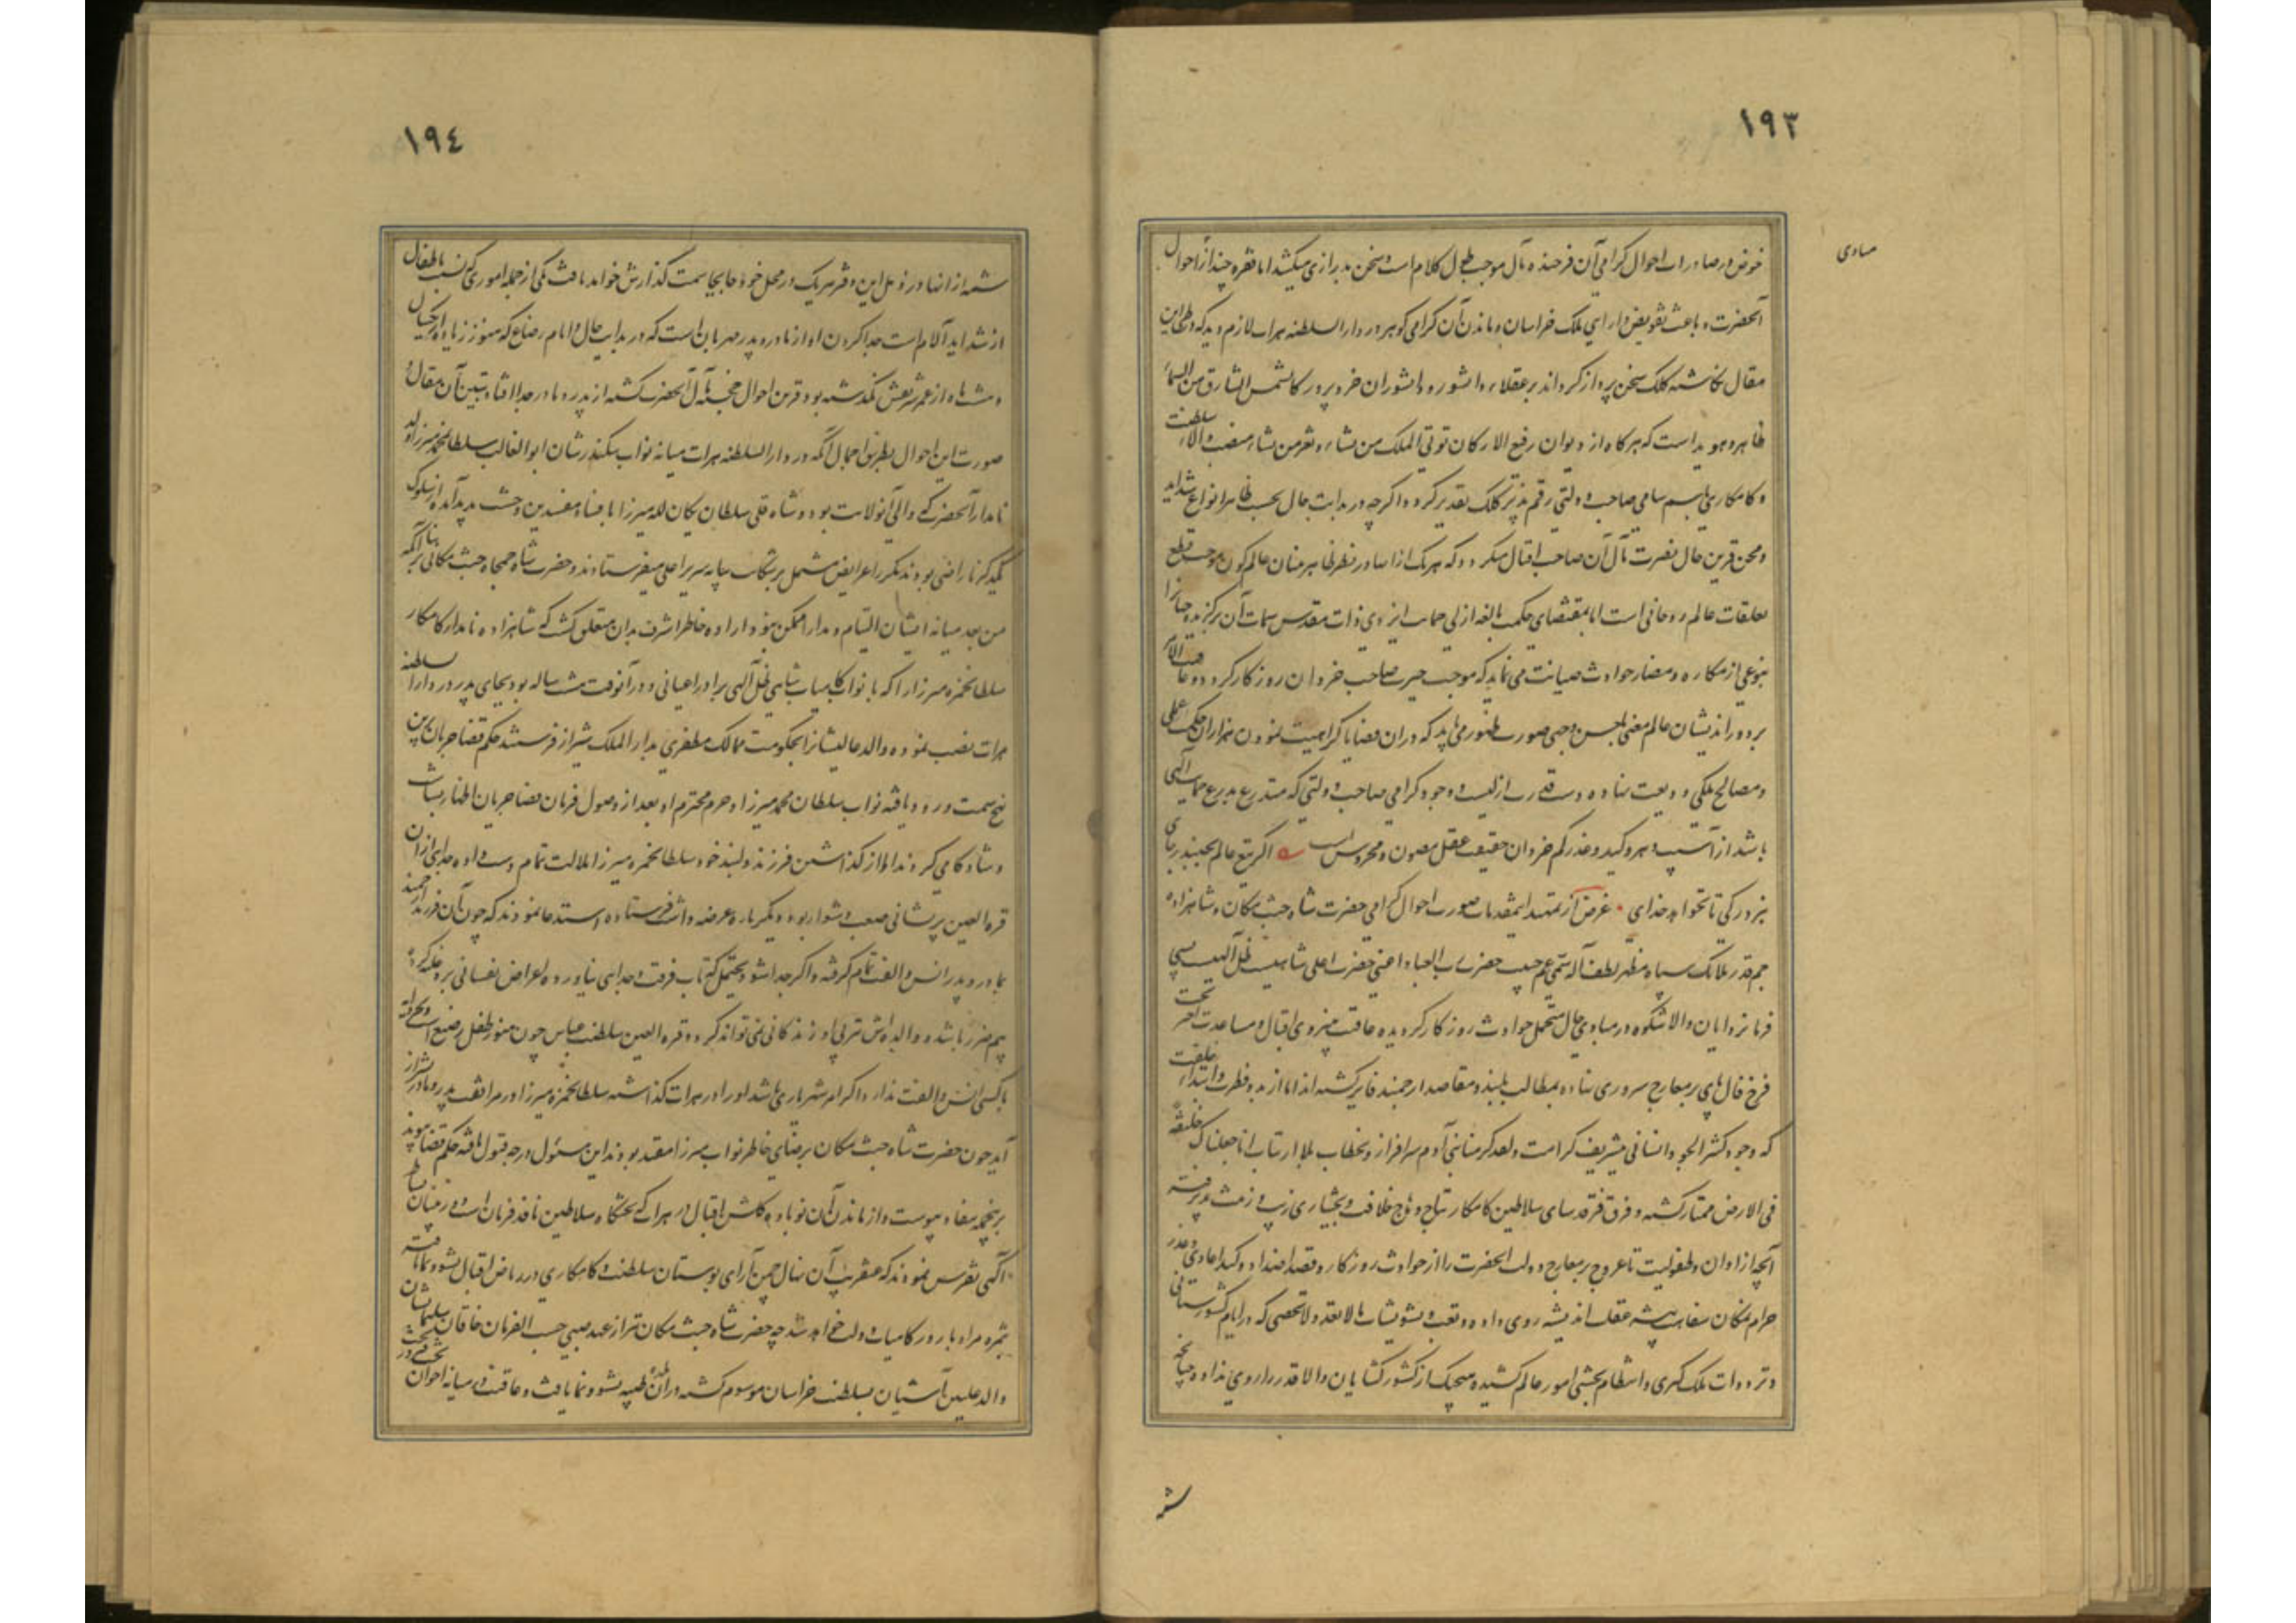 ١٩٣
مبادی
خوض در صادرات احوال گرامی آن فرخنده مآل موجب طول کلام است و سخن بدرازی میکشد اما فقره چند از احوال
آنحضرت و باعث تفویض دارایی ملک خراسان و ماندن آن گرامی گوهر در دار السلطنه هرات لازم دید که در طی این
مقال نگاشته کلک سخن پرداز گرداند بر عقلاء دانشور و دانشوران خردپرور کالشمس الشارق من السماء
ظاهر و هویداست که هرگاه از دیوان رفیع الارکان تؤتی الملک من تشاء و تعز من تشاء منصب والاء سلطنت
و کامکاری باسم سامی صاحب دولتی رقم پذیر کلک تقدیر گردد اگرچه در بدایت حال بحسب ظاهر انواع شداید
و محن قرین حال نصرت مآل آن صاحب اقبال میگردد که هریک از انها در نظر ظاهربینان عالم کون موجب قطع
تعلقات عالم روحانی است اما بمقتضای حکمت بالغه ازلی حمایت ایزدی ذات مقدس سمات آن برگزیده را
بنوعی از مکاره و مضار حوادث صیانت می نماید که موجب حیرت صاحب خردان روزگار گردد و عاقبت الامر
بر دوراندیشان عالم معنی باحسن وجهی صورت ظهور می یابد که در آن قضایا کراهیت نمودن هزاران حکم عملی
و مصالح ملکی ودیعت نهاده دست قدرت ازلیست وجود گرامی صاحب دولتی که متدرع بدرع حمایت الهی
باشد از آسیب دهر و کید و غدر کم خردان ضعیف عقل مصون و محروس است اگر تیغ عالم بجنبد ز جای
نبرد رگی تا نخواهد خدای غرض از تمهید اینمقدمات صورت احوال گرامی حضرت شاه جنت مکان و شاهزاده
جم قدر ملائک سپاه مظهر لطف آله سمی عم حبیب حضرت رب العباد اعنی حضرت اعلی شاهی ظل اللهیست
فرمانروایان والاشکوه در مبادی حال متحمل حوادث روزگار گردیده عاقبت بنیروی اقبال و مساعدت بخت
فرخ فال پای بر معارج سروری نهاده بمطالب بلند و مقاصد ارجمند فایز گشته اند اما از بدو فطرت و ابتداء خلقت
که وجود کثیر الجود انسانی بتشریف کرامت و لقد کرمنا بنی آدم سرافراز و بخطاب انا جعلناک خلیفة
فی الارض ممتاز گشته و فرق فرقدسای سلاطین کامکار بتاج وهاج خلافت و بختیاری زیب و زینت پذیرفته
آنچه از اوان طفولیت تا عروج بر معارج دولت آنحضرت را از حوادث روزگار و قصد اضداد و کید اعادی و غدر
حرام نمکان سفاهت پیشه غفلت اندیشه روی داده و تعب و تشویشات لا تعد و لا تحصی که در ایام کشورستانی
و ترددات ملک گیری و انتظام بخشی امور عالم کشیده هیچیک از کشورگشایان والاقدر را روی نداده چنانچه
شمه
١٩٤
شمه از انها در ذیل این دفتر هریک در محل خود جابجا سمت گذارش خواهد یافت یکی از جمله اموری که نسبت باطفال
از شداید آلام است جدا کردن او از مادر و پدر مهربان است که در بدایت حال و ایام رضاع که هنوز زیاده از یکسال
و شش ماه از عمر شریفش نگذشته بود قرین احوال خجسته مآل آنحضرت گشته از پدر و مادر جدا افتاد تبیین آن مقال
صورت این احوال بطریق اجمال آنکه در دار السلطنه هرات میانه نواب سکندرشان ابو الغالب سلطان محمد میرزا والد
نامدار آنحضرت که والی آنولایت بود و شاه قلی سلطان یکان لله میرزا بافساد مفسدین وحشت پدید آمده از سلوک
یکدیگر ناراضی بودند مکرر اعرایض مشتمل بر شکایت بپایه سریر اعلی میفرستادند حضرت شاه جمجاه جنت مکانی بنابر آنکه
من بعد میانه ایشان التیام و مدارا ممکن نبود اراده خاطر اشرف بدان متعلق گشت که شاهزاده نامدار کامکار
سلطان حمزه میرزا را که با نواب کامیاب شاهی ظل آلهی برادر اعیانی و در آنوقت هشت ساله بود بجای پدر در دار السلطنه
هرات نصب نموده والد عالیشانرا بحکومت ممالک مظفری بدار الملک شیراز فرستند حکم قضا جریان برین
نهج سمت ورود یافته نواب سلطان محمد میرزا و حرم محترم او بعد از وصول فرمان قضا جریان اظهار بشاشت
و شادکامی کردند اما از گذاشتن فرزند دلبند خود سلطان حمزه میرزا ملالت تمام دست داده جدایی از آن
قرة العین پریشانی صعب و دشوار بود دیگرباره عرضه داشت فرستاده استدعا نمودند که چون آن فرزند ارجمند
بمادر و پدر انس و الفت تمام گرفته و اگر جدا شود یحتمل که تاب فرقت و جدایی نیاورده اعراض نفسانی برو غلبه کرده
بیم ضرر باشد و والده اش نیز بی او زندگانی نمی تواند کرد و قرة العین سلطنت عباس چون هنوز طفل رضیع است و
با کسی انس و الفت ندارد اگر امر شهریاری باشد او را در هرات گذاشته سلطان حمزه میرزا در مرافقت پدر و مادر بشیراز
آید چون حضرت شاه جنت مکان برضای خاطر نواب میرزا مقید بودند این مسئول درجه قبول یافته حکم قضا پیوند
برینجمله بنفاذ پیوست و از ماندن آن نوباوه گلشن اقبال در هرات که تختگاه سلاطین نافذ فرمان است
آگهی تفرس نمودند که عنقریب آن نهال چمن آرای بوستان سلطنت و کامکاری در ریاض اقبال نشو و نما یافته
بثمره مراد بارور کامیاب دولت خواهد شد چه حضرت شاه جنت مکان نیز از عهد صبی حسب الفرمان خاقان سلیمانشان
والد علیین آشیان بسلطنت خراسان موسوم گشته در آن بلده طیبه نشو و نما یافت و عاقبت در میانه اخوان